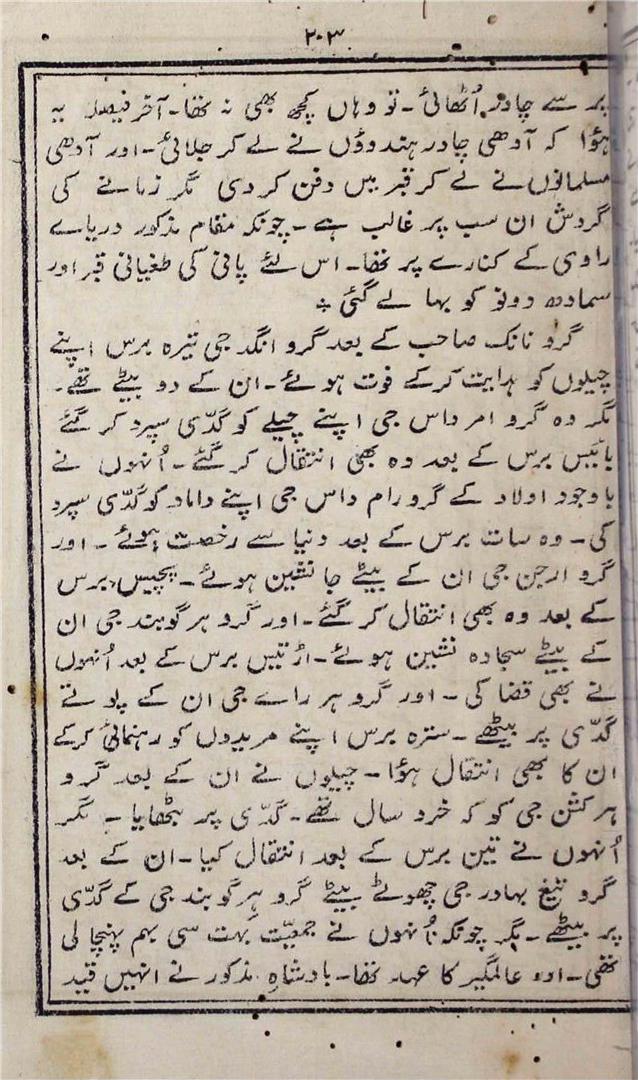 ۲۰۳
پر سے چادر اُٹھائی۔ تو وہاں کچھ بھی نہ تھا۔ آخر فیصلہ یہ
ہؤا کہ آدھی چادر ہندوؤں نے لے کر جلائی۔ اور آدھی
مسلمانوں نے لے کر قبر میں دفن کر دی مگر زمانے کی
گردش ان سب پر غالب ہے۔ چونکہ مقام مذکور دریاے
راوی کے کنارے پر تھا۔ اس لئے پانی کی طغیانی قبر اور
سمادھ دونو کو بہا لے گئی ؞
گرو نانک صاحب کے بعد گرو انگد جی تیرہ برس اپنے
چیلوں کو ہدایت کرکے فوت ہوئے۔ ان کے دو بیٹے تھے۔
مگر وہ گرو امر داس جی اپنے چیلے کو گدّی سپرد کر گئے
بائیس برس کے بعد وہ بھی انتقال کر گئے۔ اُنہوں نے
باوجود اولاد کے گرو رام داس جی اپنے داماد کو گدّی سپرد
کی۔ وہ سات برس کے بعد دنیا سے رخصت ہوئے۔ اور
گرو ارجن جی ان کے بیٹے جانشین ہوئے۔ پچیس برس
کے بعد وہ بھی انتقال کر گئے۔ اور گرو ہر گوبند جی ان
کے بیٹے سجادہ نشین ہوئے۔ اڑتیس برس کے بعد اُنہوں
نے بھی قضا کی۔ اور گرو ہر راے جی ان کے پوتے
گدّی پر بیٹھے۔ سترہ برس اپنے مریدوں کو رہنمائی کرکے
ان کا بھی انتقال ہؤا۔ چیلوں نے ان کے بعد گرو
ہرکشن جی کو کہ خرد سال تھے۔ گدّی پر بٹھایا۔ مگر
اُنہوں نے تین برس کے بعد انتقال کیا۔ ان کے بعد
گرو تیغ بہادر جی چھوٹے بیٹے گرو ہر گوبند جی کے گدّی
پر بیٹھے۔ مگر چونکہ اُنہوں نے جمعیّت بہت سی بہم پہنچا لی
تھی۔ اور عالمگیر کا عہد تھا۔ بادشاہِ مذکور نے انہیں قید